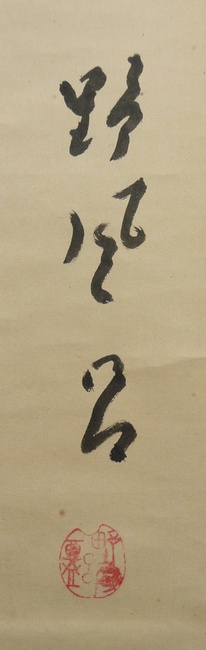 野風呂